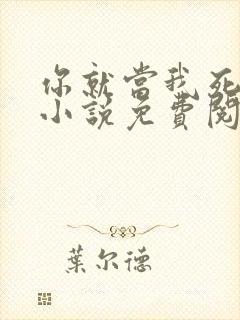 你就當我死
小說免費閱
葉尔德